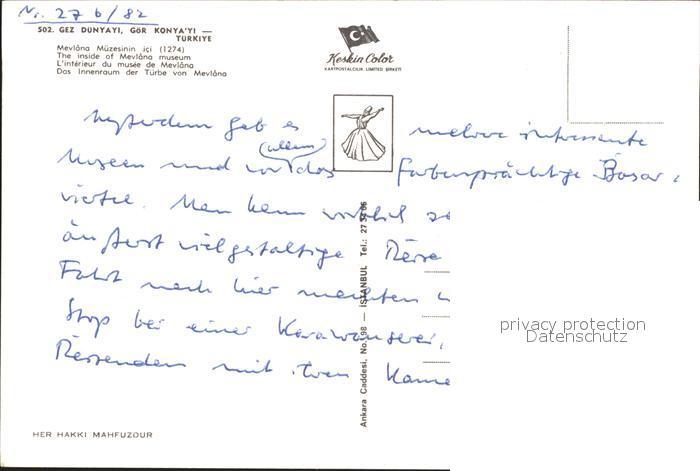 Nr. 27 6/82
502. GEZ DUNYAYI, GÖR KONYA'YI —
TÜRKİYE
Mevlâna Müzesinin içi (1274)
The inside of Mevlâna museum
L'intérieur du musée de Mevlâna
Das Innenraum der Türbe von Mevlâna
Keskin Color
KARTPOSTALCILIK LIMITED ŞİRKETİ
Ausserdem gab es mehrere interessante
(allem)
Museen und vor das farbenprächtige Basar-
viertel. Man kann wirklich
äußerst vielgestaltige Reise
Fahrt nach hier machten
Stop bei einer Karawanserei,
Reisenden mit ihren Kame
Ankara Caddesi, No. 98 — İSTANBUL Tel.: 27
HER HAKKI MAHFUZDUR
privacy protection
Datenschutz